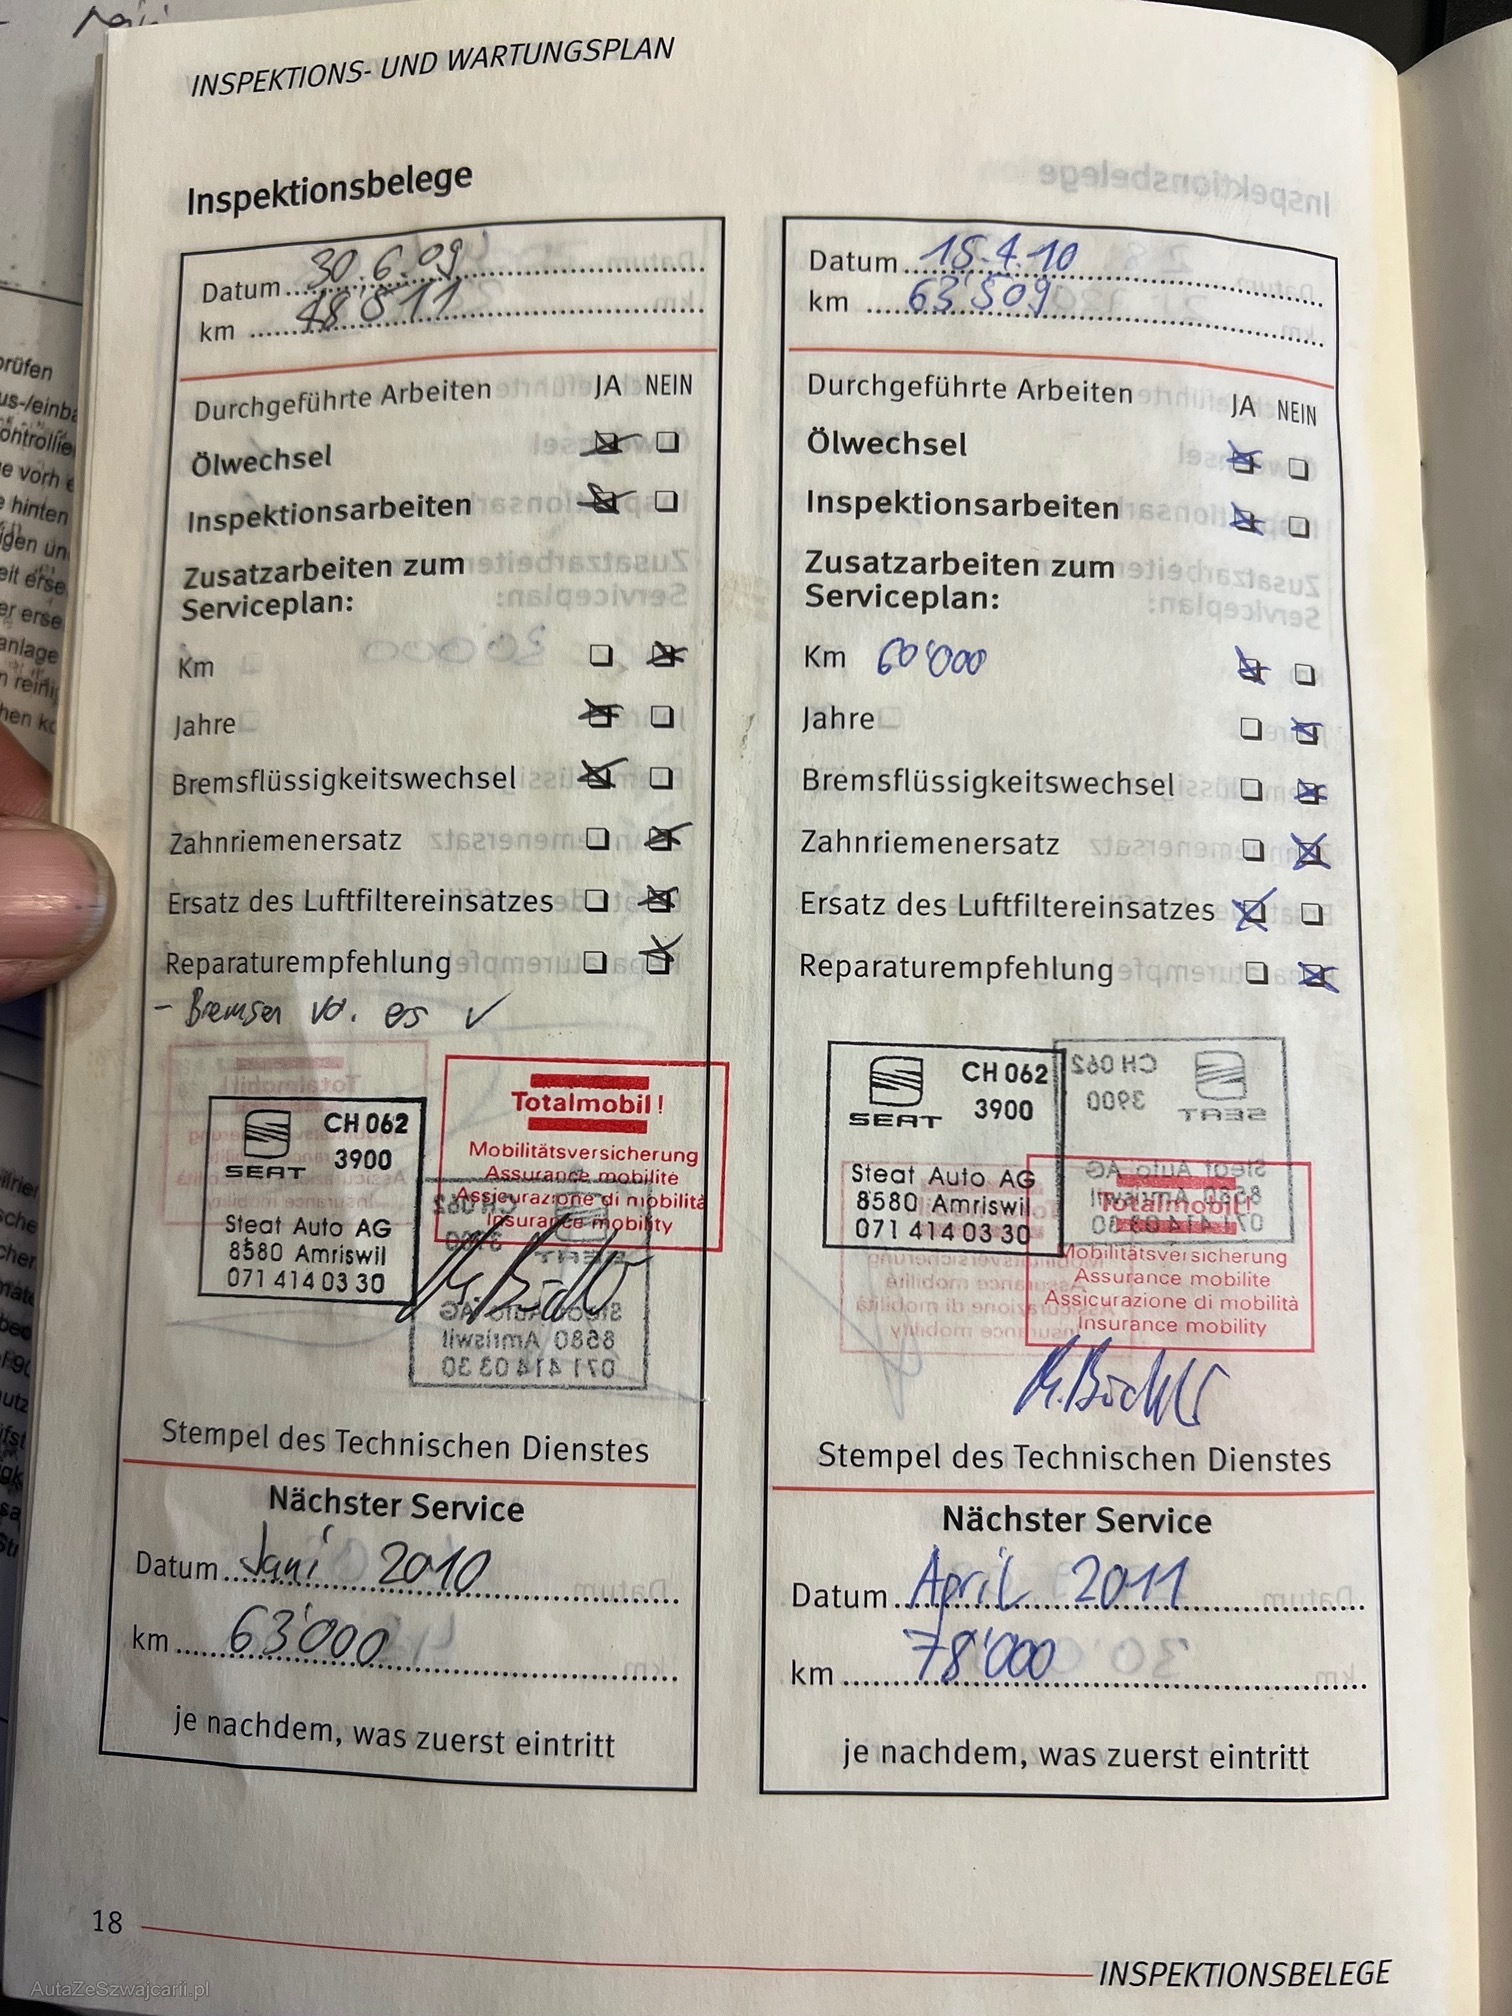 INSPEKTIONS- UND WARTUNGSPLAN
Inspektionsbelege
Datum 30.6.09
km 48'811
Durchgeführte Arbeiten JA NEIN
Ölwechsel
Inspektionsarbeiten
Zusatzarbeiten zum
Serviceplan:
Km
Jahre
Bremsflüssigkeitswechsel
Zahnriemenersatz
Ersatz des Luftfiltereinsatzes
Reparaturempfehlung
- Bremsen
Totalmobil!
Mobilitätsversicherung
Assurance mobilite
Assicurazione di mobilità
Insurance mobility
CH 062
3900
SEAT
Steat Auto AG
8580 Amriswil
071 414 03 30
Stempel des Technischen Dienstes
Nächster Service
Datum Juni 2010
km 63'000
je nachdem, was zuerst eintritt
Datum 15.4.10
km 63'509
Durchgeführte Arbeiten JA NEIN
Ölwechsel
Inspektionsarbeiten
Zusatzarbeiten zum
Serviceplan:
Km 60'000
Jahre
Bremsflüssigkeitswechsel
Zahnriemenersatz
Ersatz des Luftfiltereinsatzes
Reparaturempfehlung
CH 062
3900
SEAT
Steat Auto AG
8580 Amriswil
071 414 03 30
Totalmobil!
Mobilitätsversicherung
Assurance mobilite
Assicurazione di mobilità
Insurance mobility
Stempel des Technischen Dienstes
Nächster Service
Datum April 2011
km 78'000
je nachdem, was zuerst eintritt
18
INSPEKTIONSBELEGE
AutaZeSzwajcarii.pl